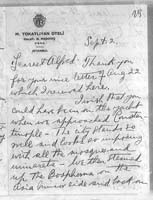 25
M. TOKATLIYAN OTELİ
ISTANBUL
Sept. 2.
Dearest Alfred. Thank
you for your nice letter of Aug 22
which I received here.
I wish that you
could have been on the yacht
when we approached Constan-
tinople - The city stands so
well and looks so imposing
with all the mosques and
minarets - We then steamed
up the Bosphorus on the
Asia Minor side and back on